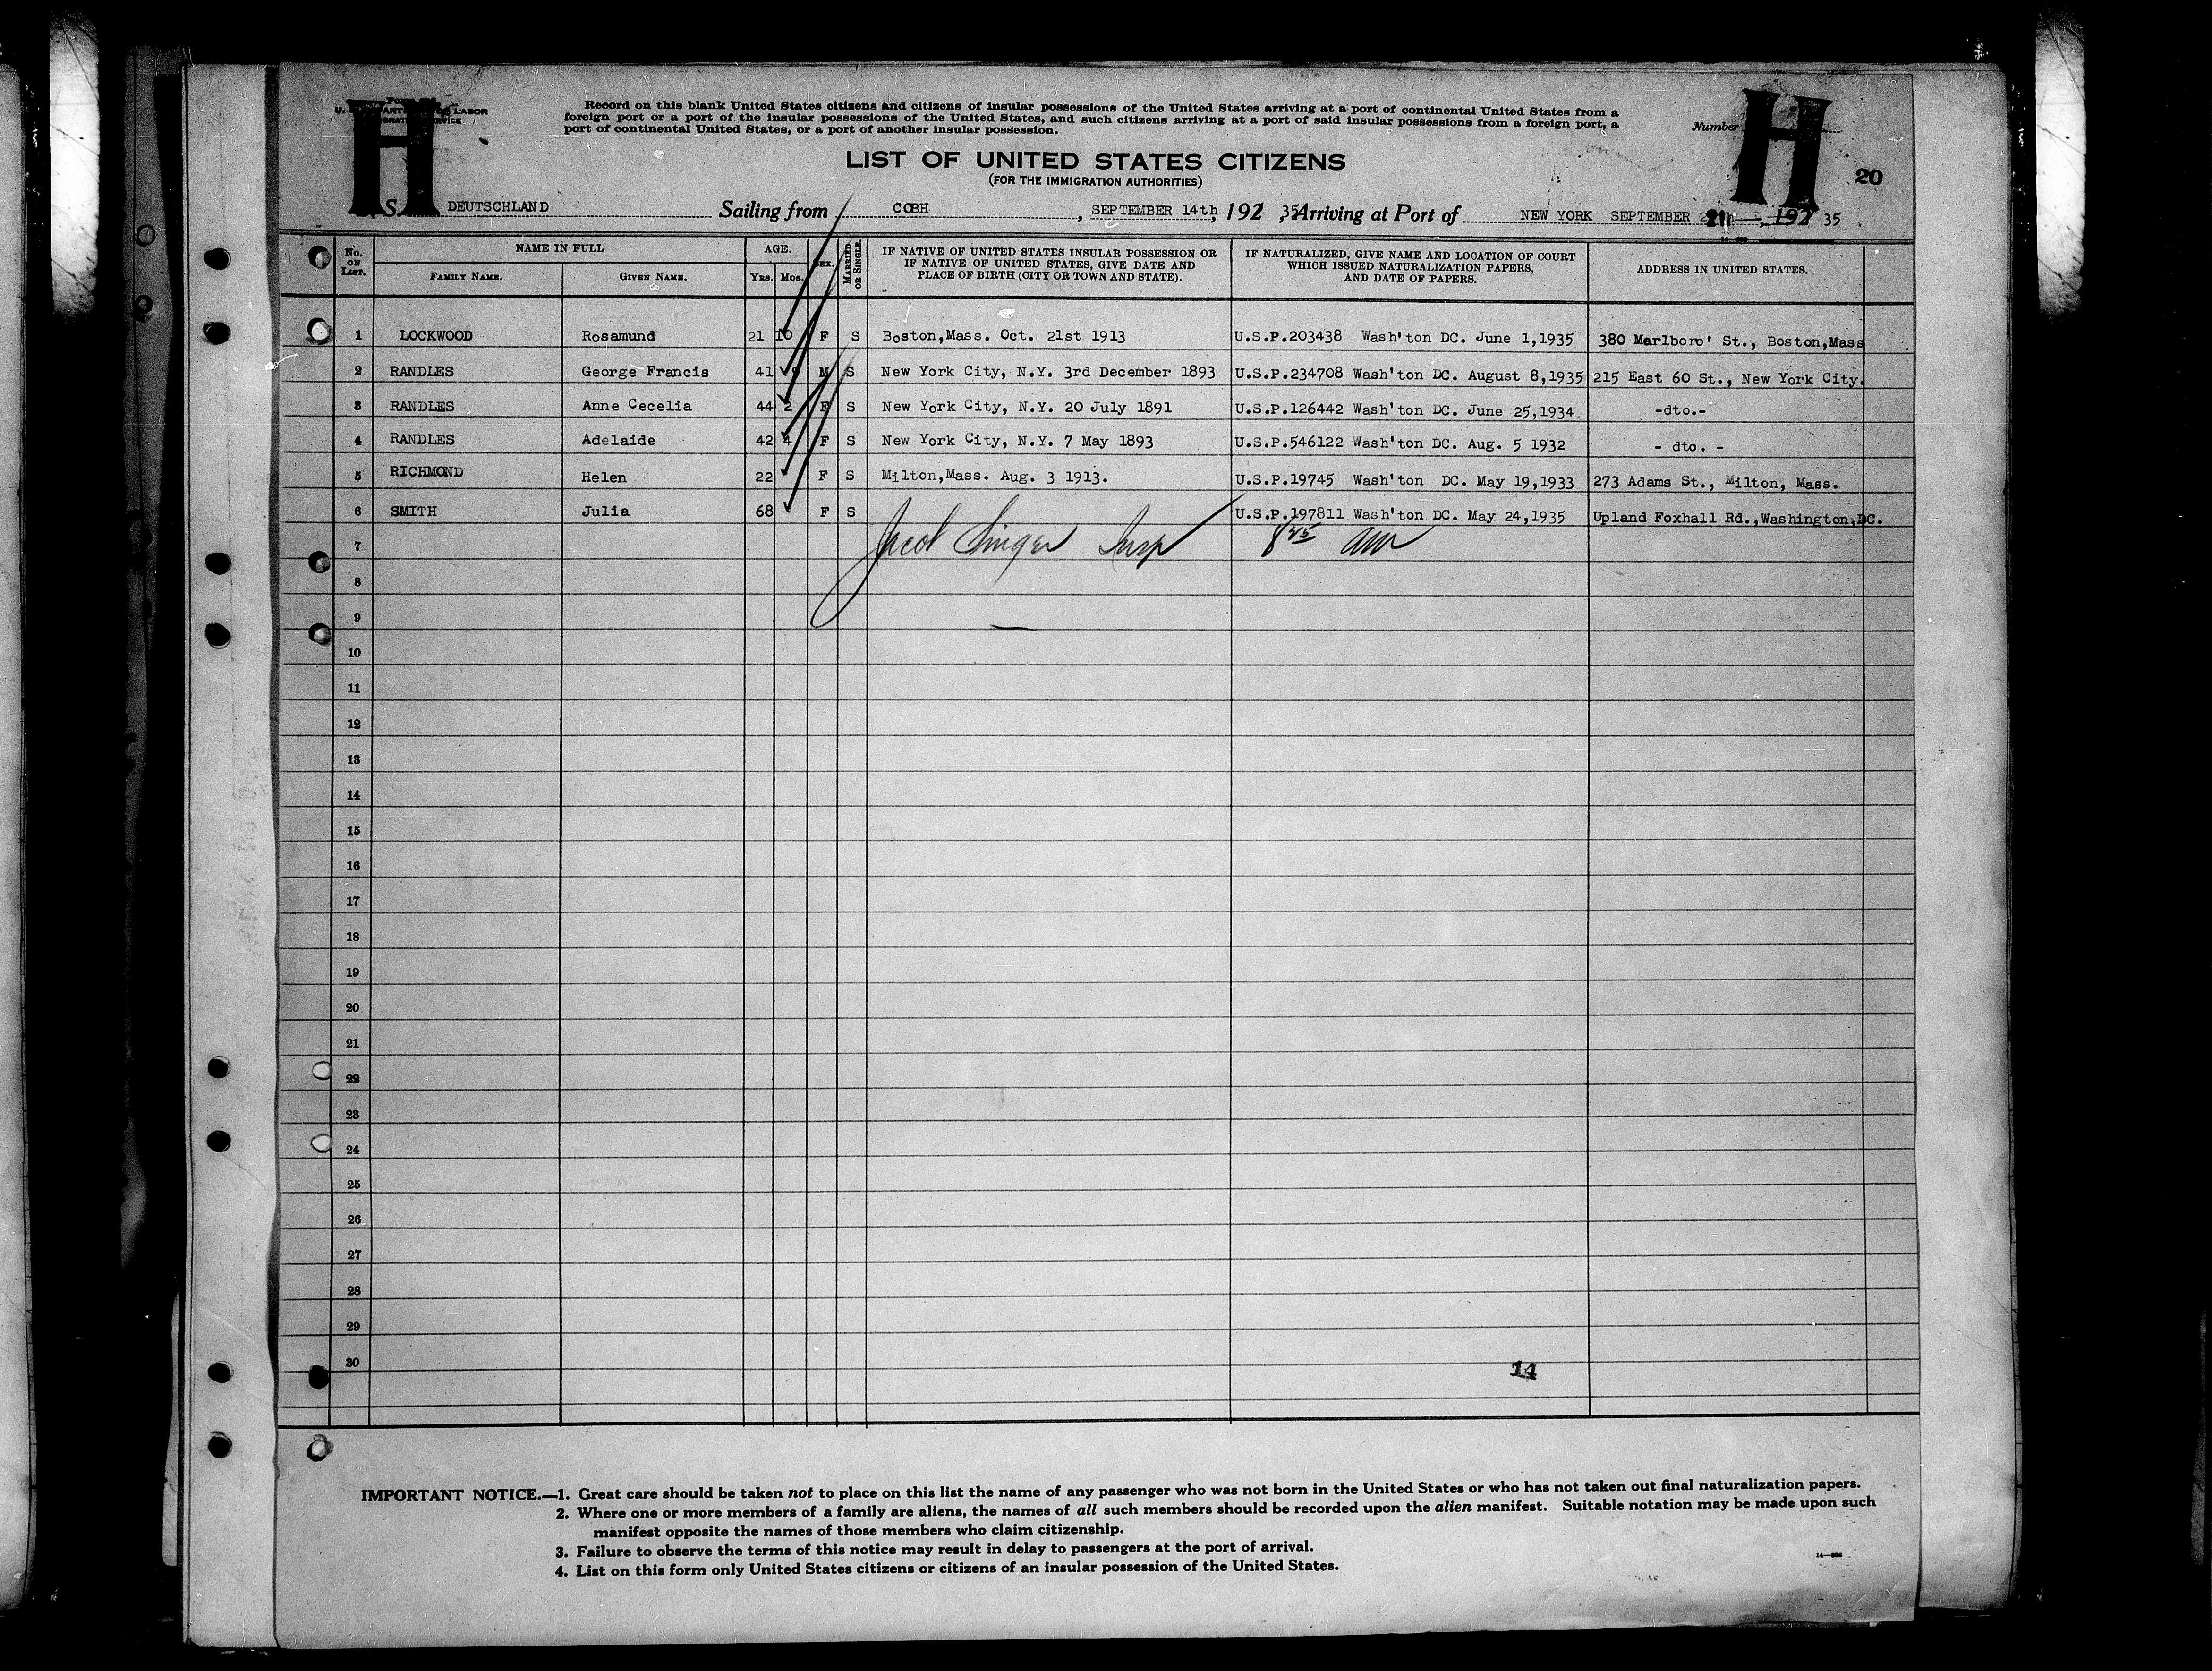 H
H
Record on this blank United States citizens and citizens of insular possessions of the United States arriving at a port of continental United States from a
foreign port or a port of the insular possessions of the United States, and such citizens arriving at a port of said insular possessions from a foreign port, a
port of continental United States, or a port of another insular possession.
Number
20
LIST OF UNITED STATES CITIZENS
(FOR THE IMMIGRATION AUTHORITIES)
S. DEUTSCHLAND Sailing from COBH, SEPTEMBER 14th, 192 35, Arriving at Port of NEW YORK SEPTEMBER 21, 192 35
No. ON LIST. NAME IN FULL FAMILY NAME. GIVEN NAME. AGE. Yrs. Mos. SEX. MARRIED OR SINGLE.
IF NATIVE OF UNITED STATES INSULAR POSSESSION OR
IF NATIVE OF UNITED STATES, GIVE DATE AND
PLACE OF BIRTH (CITY OR TOWN AND STATE).
IF NATURALIZED, GIVE NAME AND LOCATION OF COURT
WHICH ISSUED NATURALIZATION PAPERS,
AND DATE OF PAPERS.
ADDRESS IN UNITED STATES.
1 LOCKWOOD Rosamund 21 10 F S Boston,Mass. Oct. 21st 1913 U.S.P.203438 Wash'ton DC. June 1,1935 380 Marlboro' St., Boston,Mass
2 RANDLES George Francis 41 9 M S New York City, N.Y. 3rd December 1893 U.S.P.234708 Wash'ton DC. August 8,1935 215 East 60 St., New York City.
3 RANDLES Anne Cecelia 44 2 F S New York City, N.Y. 20 July 1891 U.S.P.126442 Wash'ton DC. June 25,1934. -dto.-
4 RANDLES Adelaide 42 4 F S New York City, N.Y. 7 May 1893 U.S.P.546122 Wash'ton DC. Aug. 5 1932 - dto. -
5 RICHMOND Helen 22 F S Milton,Mass. Aug. 3 1913. U.S.P.19745 Wash'ton DC. May 19,1933 273 Adams St., Milton, Mass.
6 SMITH Julia 68 F S U.S.P.197811 Wash'ton DC. May 24,1935 Upland Foxhall Rd.,Washington,DC.
7 Jacob Singer Insp 8 45 am
8
9
10
11
12
13
14
15
16
17
18
19
20
21
22
23
24
25
26
27
28
29
30
14
IMPORTANT NOTICE.—1. Great care should be taken not to place on this list the name of any passenger who was not born in the United States or who has not taken out final naturalization papers.
2. Where one or more members of a family are aliens, the names of all such members should be recorded upon the alien manifest. Suitable notation may be made upon such
manifest opposite the names of those members who claim citizenship.
3. Failure to observe the terms of this notice may result in delay to passengers at the port of arrival.
4. List on this form only United States citizens or citizens of an insular possession of the United States.